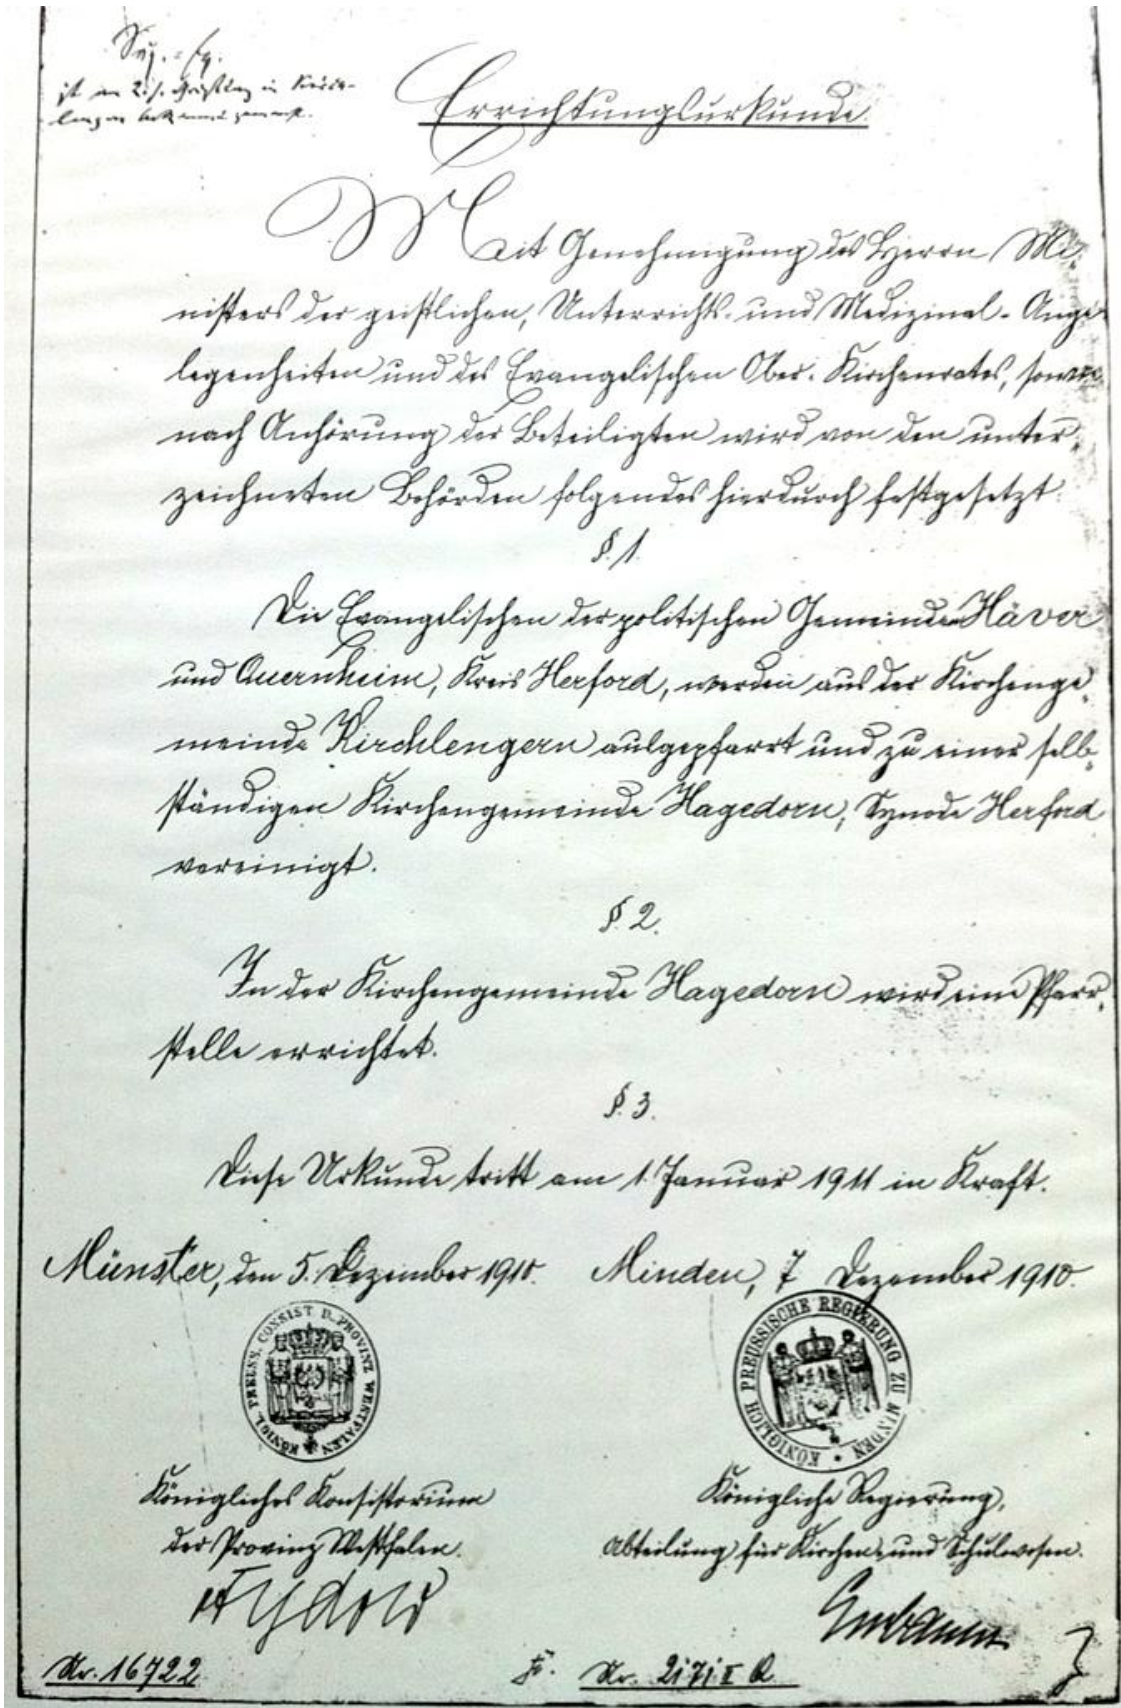 ist am 2. . in Kirch-
lengern bekannt gemacht.
Errichtungsurkunde.
Mit Genehmigung des Herrn Mi-
nisters der geistlichen, Unterrichts- und Medizinal-Ange-
legenheiten und des Evangelischen Ober-Kirchenrates, sowie
nach Anhörung der Beteiligten wird von den unter-
zeichneten Behörden folgendes hierdurch festgesetzt:
§. 1.
Die Evangelischen der politischen Gemeinden Häver
und Quernheim, Kreis Herford, werden aus der Kirchenge-
meinde Kirchlengern ausgepfarrt und zu einer selb-
ständigen Kirchengemeinde Hagedorn, Synode Herford
vereinigt.
§. 2.
In der Kirchengemeinde Hagedorn wird eine Pfarr-
stelle errichtet.
§. 3.
Diese Urkunde tritt am 1. Januar 1911 in Kraft.
Münster, den 5. Dezember 1910. Minden, 7 Dezember 1910.
KÖNIGL. PREUSS. CONSIST D. PROVINZ WESTFALEN
KÖNIGLICH PREUSSISCHE REGIERUNG ZU MINDEN
Königliches Konsistorium
der Provinz Westfalen.
Königliche Regierung,
Abteilung für Kirchen- und Schulwesen.
Nr. 16722
Nr. 2171 II R